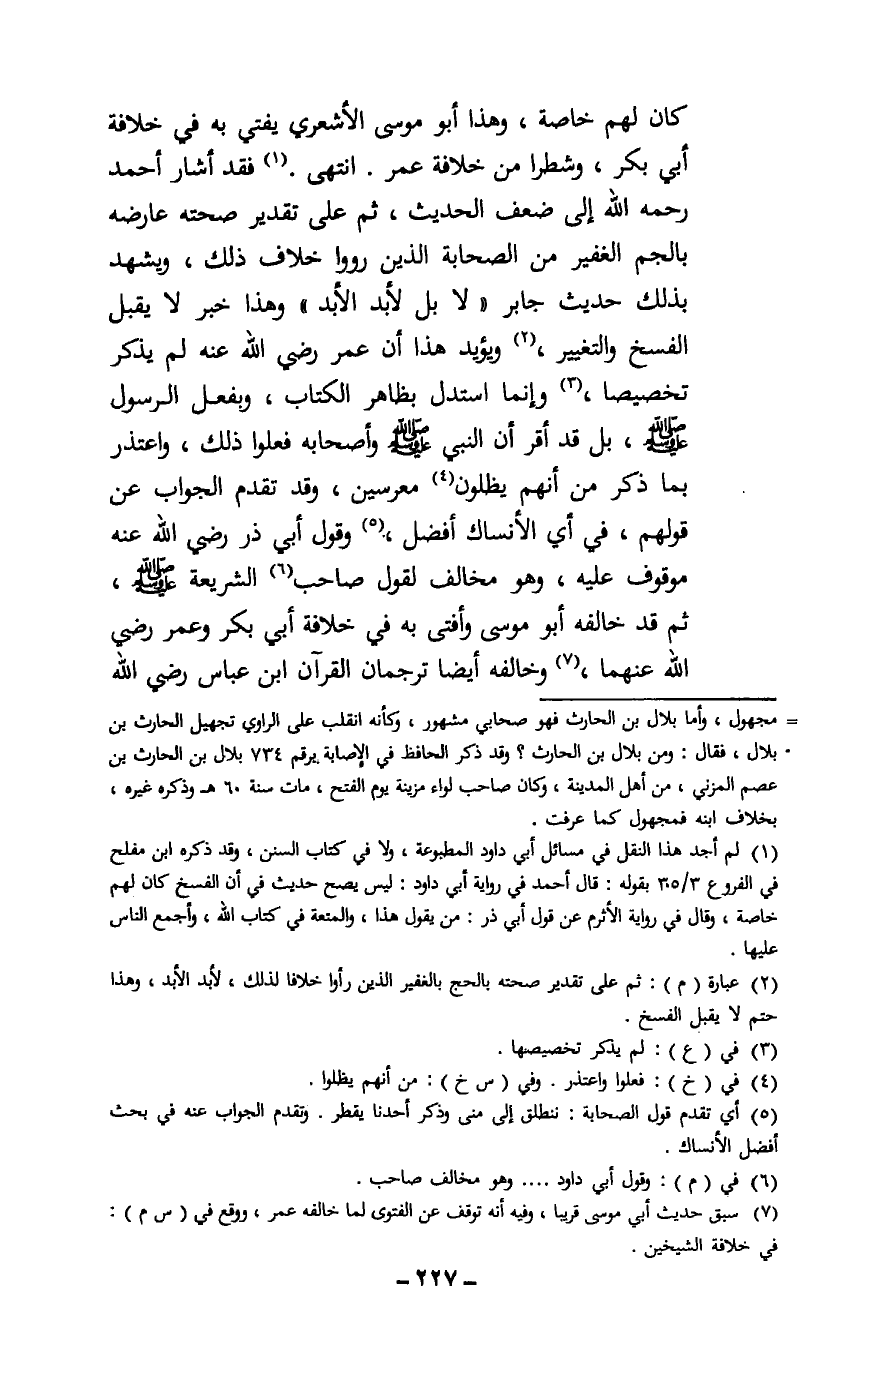 كان لهم خاصة ، وهذا أبو موسى الأشعري يفتي به في خلافة
أبي بكر ، وشطرا من خلافة عمر . انتهى .(١) فقد أشار أحمد
رحمه الله إلى ضعف الحديث ، ثم على تقدير صحته عارضه
بالجم الغفير من الصحابة الذين رووا خلاف ذلك ، ويشهد
بذلك حديث جابر « لا بل لأبد الأبد » وهذا خبر لا يقبل
الفسخ والتغيير ،(٢) ويؤيد هذا أن عمر رضي الله عنه لم يذكر
تخصيصا ،(٣) وإنما استدل بظاهر الكتاب ، وبفعل الرسول
ﷺ ، بل قد أقر أن النبي ﷺ وأصحابه فعلوا ذلك ، واعتذر
بما ذكر من أنهم يظلون(٤) معرسين ، وقد تقدم الجواب عن
قولهم ، في أي الأنساك أفضل ،(٥) وقول أبي ذر رضي الله عنه
موقوف عليه ، وهو مخالف لقول صاحب(٦) الشريعة ﷺ ،
ثم قد خالفه أبو موسى وأفتى به في خلافة أبي بكر وعمر رضي
الله عنهما ،(٧) وخالفه أيضا ترجمان القرآن ابن عباس رضي الله
= مجهول ، وأما بلال بن الحارث فهو صحابي مشهور ، وكأنه انقلب على الراوي تجهيل الحارث بن
بلال ، فقال : ومن بلال بن الحارث ؟ وقد ذكر الحافظ في الإصابة برقم ٧٣٤ بلال بن الحارث بن
عصم المزني ، من أهل المدينة ، وكان صاحب لواء مزينة يوم الفتح ، مات سنة ٦٠ هـ وذكره غيره ،
بخلاف ابنه فمجهول كما عرفت .
(١) لم أجد هذا النقل في مسائل أبي داود المطبوعة ، ولا في كتاب السنن ، وقد ذكره ابن مفلح
في الفروع ٣٠٥/٣ بقوله : قال أحمد في رواية أبي داود : ليس يصح حديث في أن الفسخ كان لهم
خاصة ، وقال في رواية الأثرم عن قول أبي ذر : من يقول هذا ، والمتعة في كتاب الله ، وأجمع الناس
عليها .
(٢) عبارة ( م ) : ثم على تقدير صحته بالحج بالغفير الذين رأوا خلافا لذلك ، لأبد الأبد ، وهذا
حتم لا يقبل الفسخ .
(٣) في ( ع ) : لم يذكر تخصيصها .
(٤) في ( خ ) : فعلوا واعتذر . وفي ( س خ ) : من أنهم يظلوا .
(٥) أي تقدم قول الصحابة : ننطلق إلى منى وذكر أحدنا يقطر . وتقدم الجواب عنه في بحث
أفضل الأنساك .
(٦) في ( م ) : وقول أبي داود .... وهو مخالف صاحب .
(٧) سبق حديث أبي موسى قريبا ، وفيه أنه توقف عن الفتوى لما خالفه عمر ، ووقع في ( س م ) :
في خلافة الشيخين .
ـ ٢٢٧ ـ